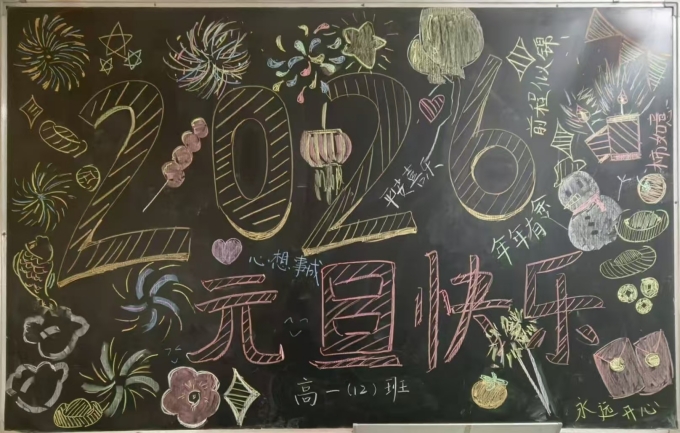 2026
前程似锦
平安喜乐
年年有余
心想事成
元旦快乐
高一(12)班
永远开心